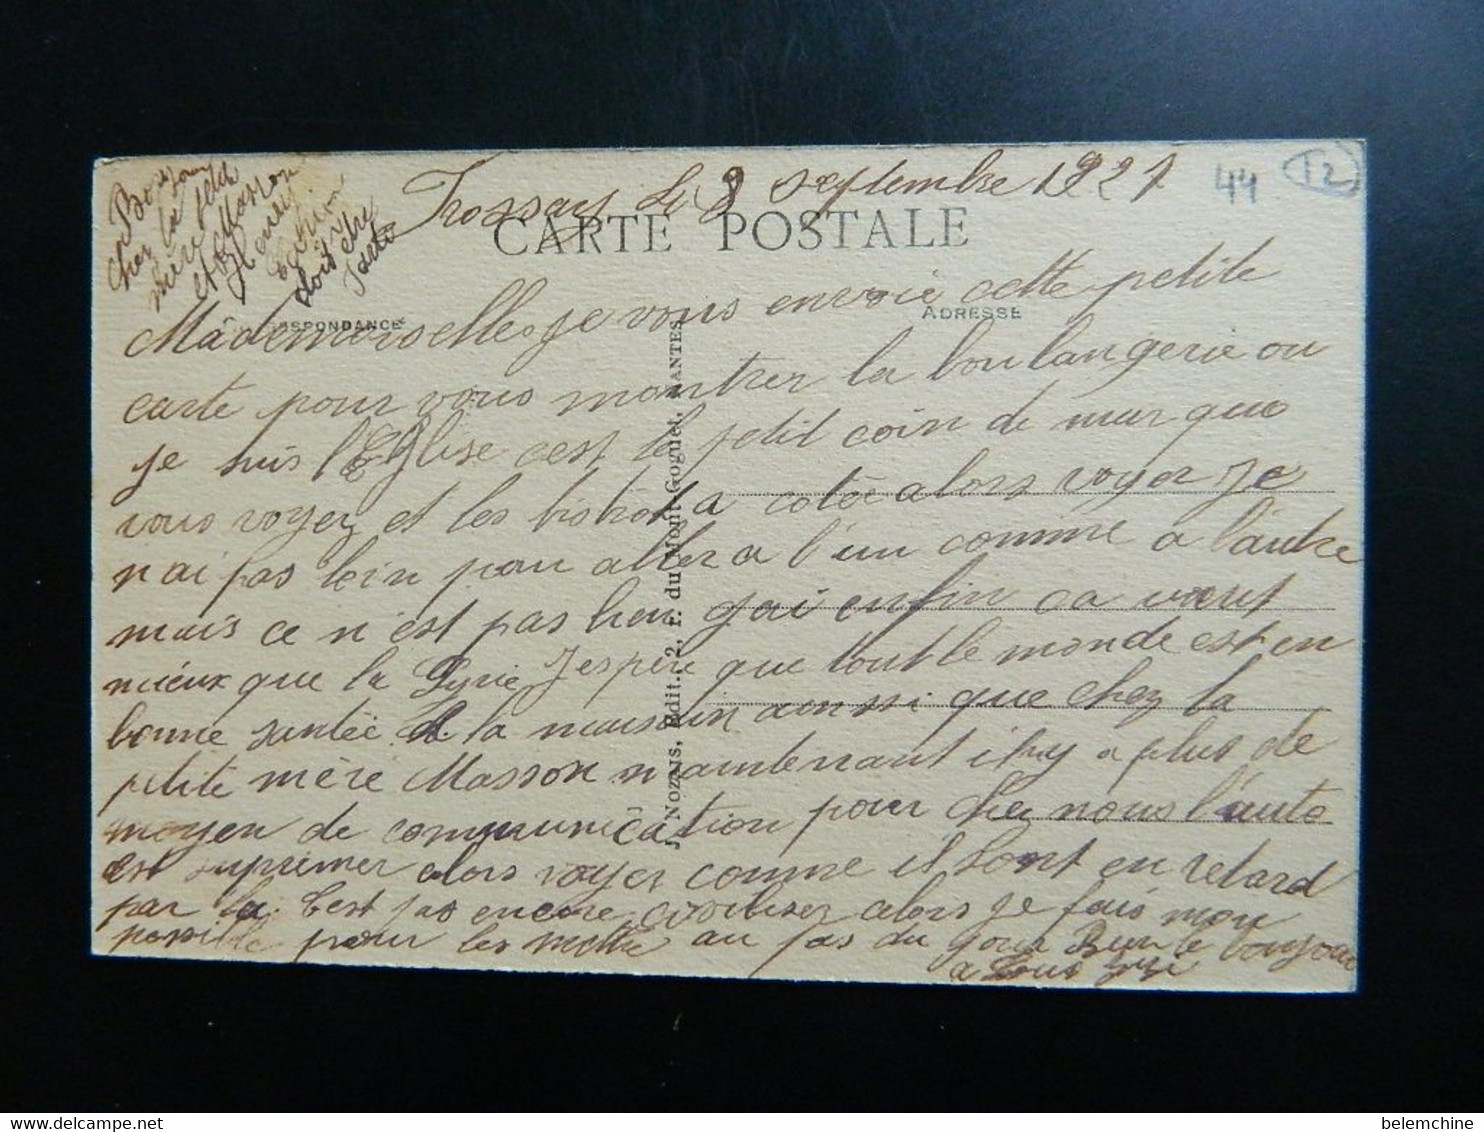 Bonjour
chez la petite
mère Masson
doit être
Frossay Le 8 Septembre 1921
44
12
CARTE POSTALE
CORRESPONDANCE
ADRESSE
J. Nozais, Edit., 2, r. du Mont-Goguet, NANTES
Mâdemoiselles je vous envoie cette petite
carte pour vous montrer la boulangerie ou
je suis l'Eglise cest le petit coin de mur que
vous voyez et les bistrot a cotée alors voyer je
n ai pas loin pour aller a l'un comme a l'autre
mais ce n'est pas lieu j'ai enfin ca vaut
mieux que la Syrie J'espère que tout le monde est en
bonne santée a la maison ainssi que chez la
petite mère Masson maintenant il hy a plus de
moyen de communication pour chez nous l'auto
est suprimer alors voyer comme il sont en retard
par la. C'est pas encore civiliser alors je fais mon
possible pour les mettre au pas du jour Bien le bonjour
a tous
belemchine